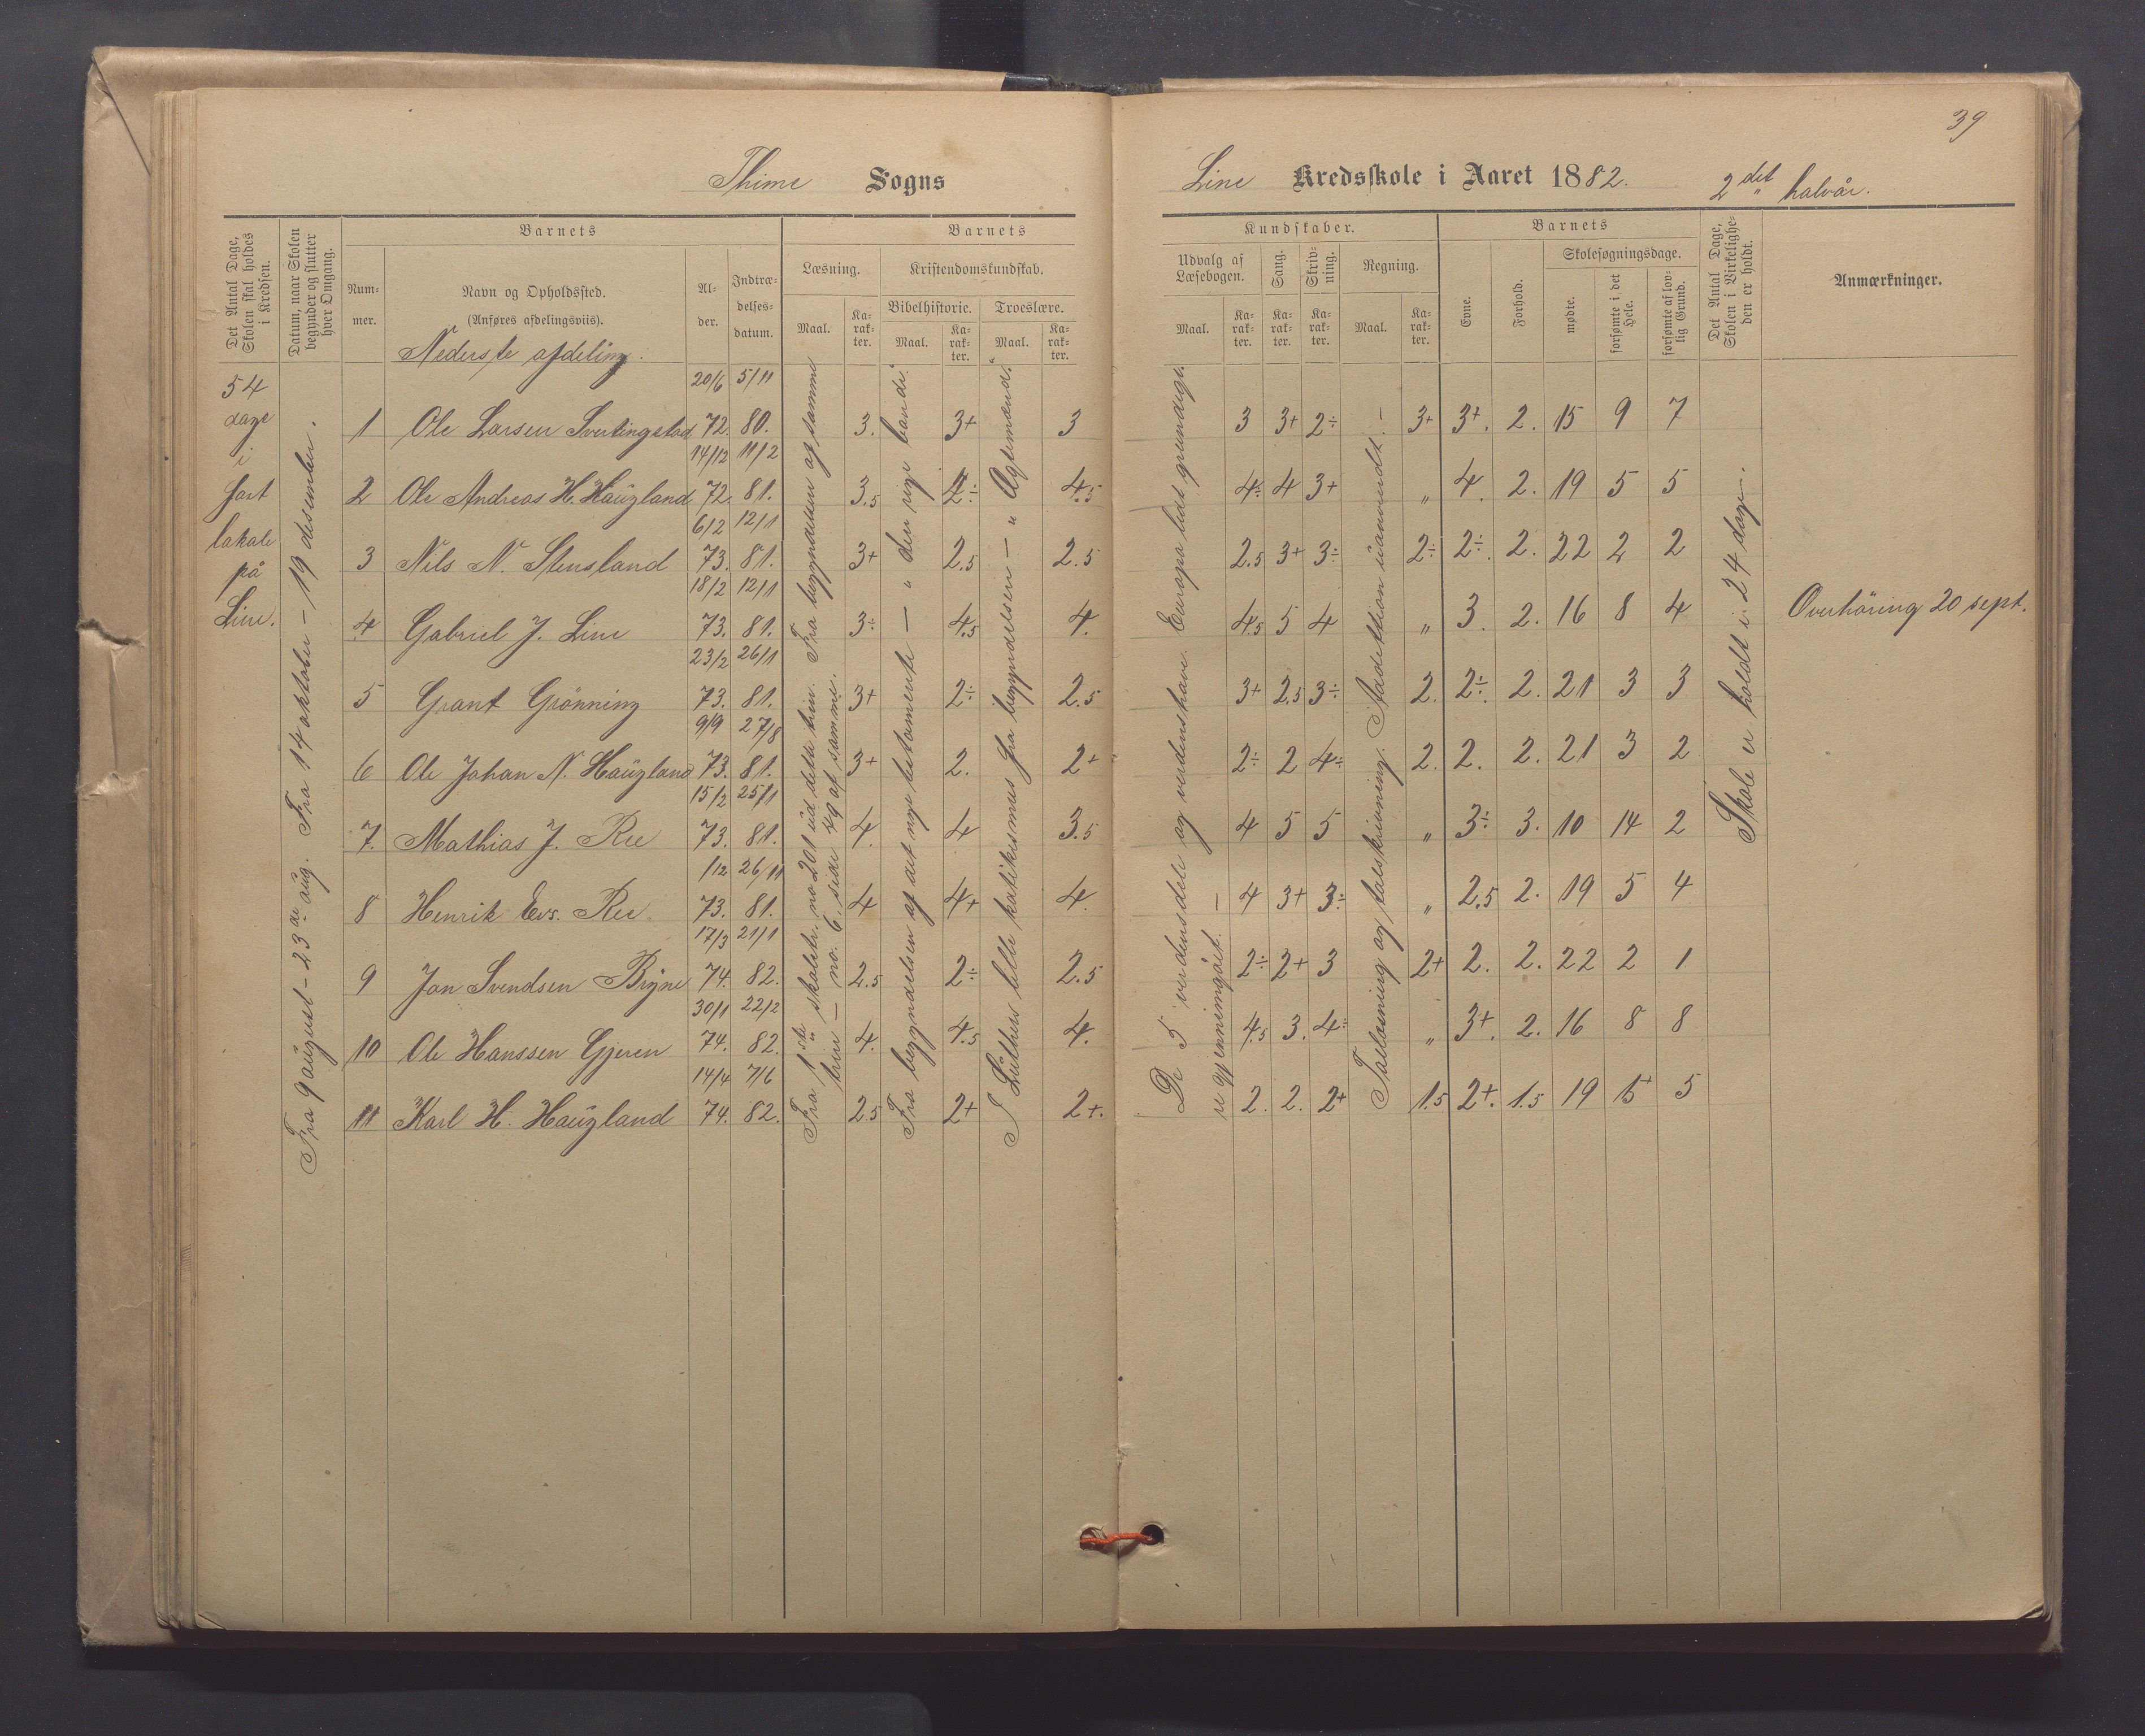 39
Thime Sogns
Line Kredsskole i Aaret 1882. 2det halvår.
Det Antal Dage, Skolen skal holdes i Kredsen.
Datum, naar Skolen begynder og slutter hver Omgang.
Barnets
Num-mer.
Navn og Opholdssted.
(Anføres afdelingsviis).
Nederste afdeling.
Al-der.
Indtræ-delses-datum.
Barnets
Læsning.
Maal.
Ka-rak-ter.
Kristendomskundskab.
Bibelhistorie.
Maal.
Ka-rak-ter.
Troeslære.
Maal.
Ka-rak-ter.
Kundskaber.
Udvalg af Læsebogen.
Maal.
Ka-rak-ter.
Sang.
Ka-rak-ter.
Skriv-ning.
Ka-rak-ter.
Regning.
Maal.
Ka-rak-ter.
Barnets
Evne.
Forhold.
Skolesøgningsdage.
mødte.
forsømte i det Hele.
forsømte af lov-lig Grund.
Det Antal Dage, Skolen i Virkelighe-den er holdt.
Anmærkninger.
54
dage
i
fast
lokale
på
Line.
Fra 9 august - 23de aug. Fra 14 oktober - 19 desember.
Fra 1ste skoletr. no 201 til dette trin. Fra begyndelsen af samme
trin - no. 6, side 49 af samme.
Fra begyndelsen af det nye testamente - " den rige bonde.
I Luthers lille katikismus fra begyndelsen - " Ægtemænd.
De 5 verdensdele og verdenshave. Europa lidt grundigere
gjennemgået. -
Tallæsning og talskrivning. Addition uanvendt. -
Skole er holdt i 24 dage.
1 Ole Larsen Svertingstad 20/6 72. 5/11 80. 3. 3+ 3 3 3+ 2÷ 3+ 3+. 2. 15 9 7
2 Ole Andreas H. Haugland 14/12 72. 11/2 81. 3.5 4÷ 4.5 4÷ 4 3+ " 4. 2. 19 5 5
3 Nils N. Stensland 6/2 73. 12/1 81. 3+ 2.5 2.5 2.5 3+ 3÷ 2÷ 2÷. 2. 22 2 2
4 Gabriel J. Line 18/2 73. 12/1 81. 3÷ 4.5 4. 4.5 5 4 " 3. 2. 16 8 4 Overhöring 20 sept.
5 Grant Grönning 23/2 73. 26/1 81. 3+ 2÷ 2.5 3+ 2.5 3÷ 2. 2÷. 2. 21 3 3
6 Ole Johan N. Haugland 9/9 73. 27/8 81. 3+ 2. 2+ 2÷ 2 4÷ 2. 2. 2. 21 3 2
7. Mathias J. Ree 15/2 73. 25/1 81. 4. 4 3.5 4 5 5 " 3÷ 3. 10 14 2
8 Henrik Evs. Ree 1/12 73. 26/11 81. 4 4+ 4. 4 3+ 3÷ " 2.5 2. 19 5 4
9 Jon Svendsen Bryne 17/3 74. 21/1 82. 2.5 2÷ 2.5 2÷ 2+ 3 2+ 2. 2. 22 2 1
10 Ole Hanssen Gjeren 30/1 74. 22/2 82. 4. 4.5 4. 4.5 3. 4÷ " 3+. 2. 16 8 8
11 Karl H. Haugland 14/4 74. 7/6 82. 2.5 2+ 2+. 2. 2. 2+ 1.5 2+. 1.5 19 5 5